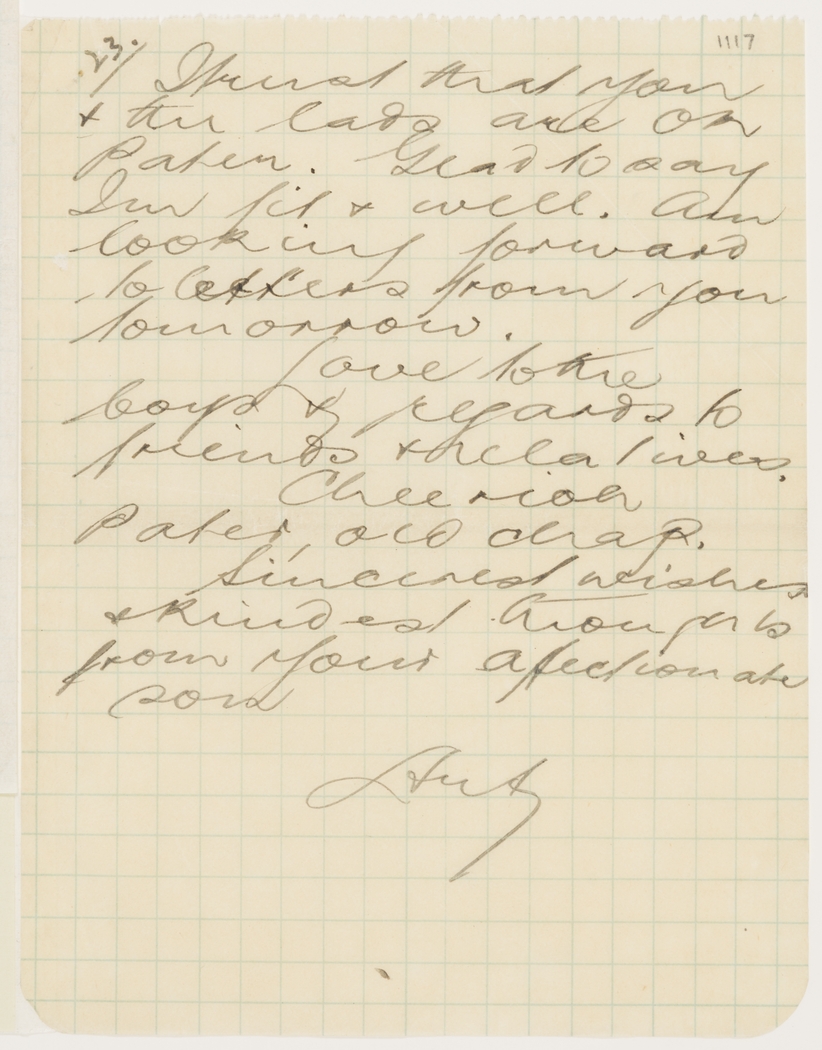 1117
23/ I trust that you
& the lads are OK
Pater. Glad to say
Im fit & well. Am
looking forward
to letters from you
tomorrow.
Love to the
boys & regards to
friends & relatives.
Cheerioh
Pater, old chap.
Sincerest wishes
& kindest thoughts
from your afectionate
son